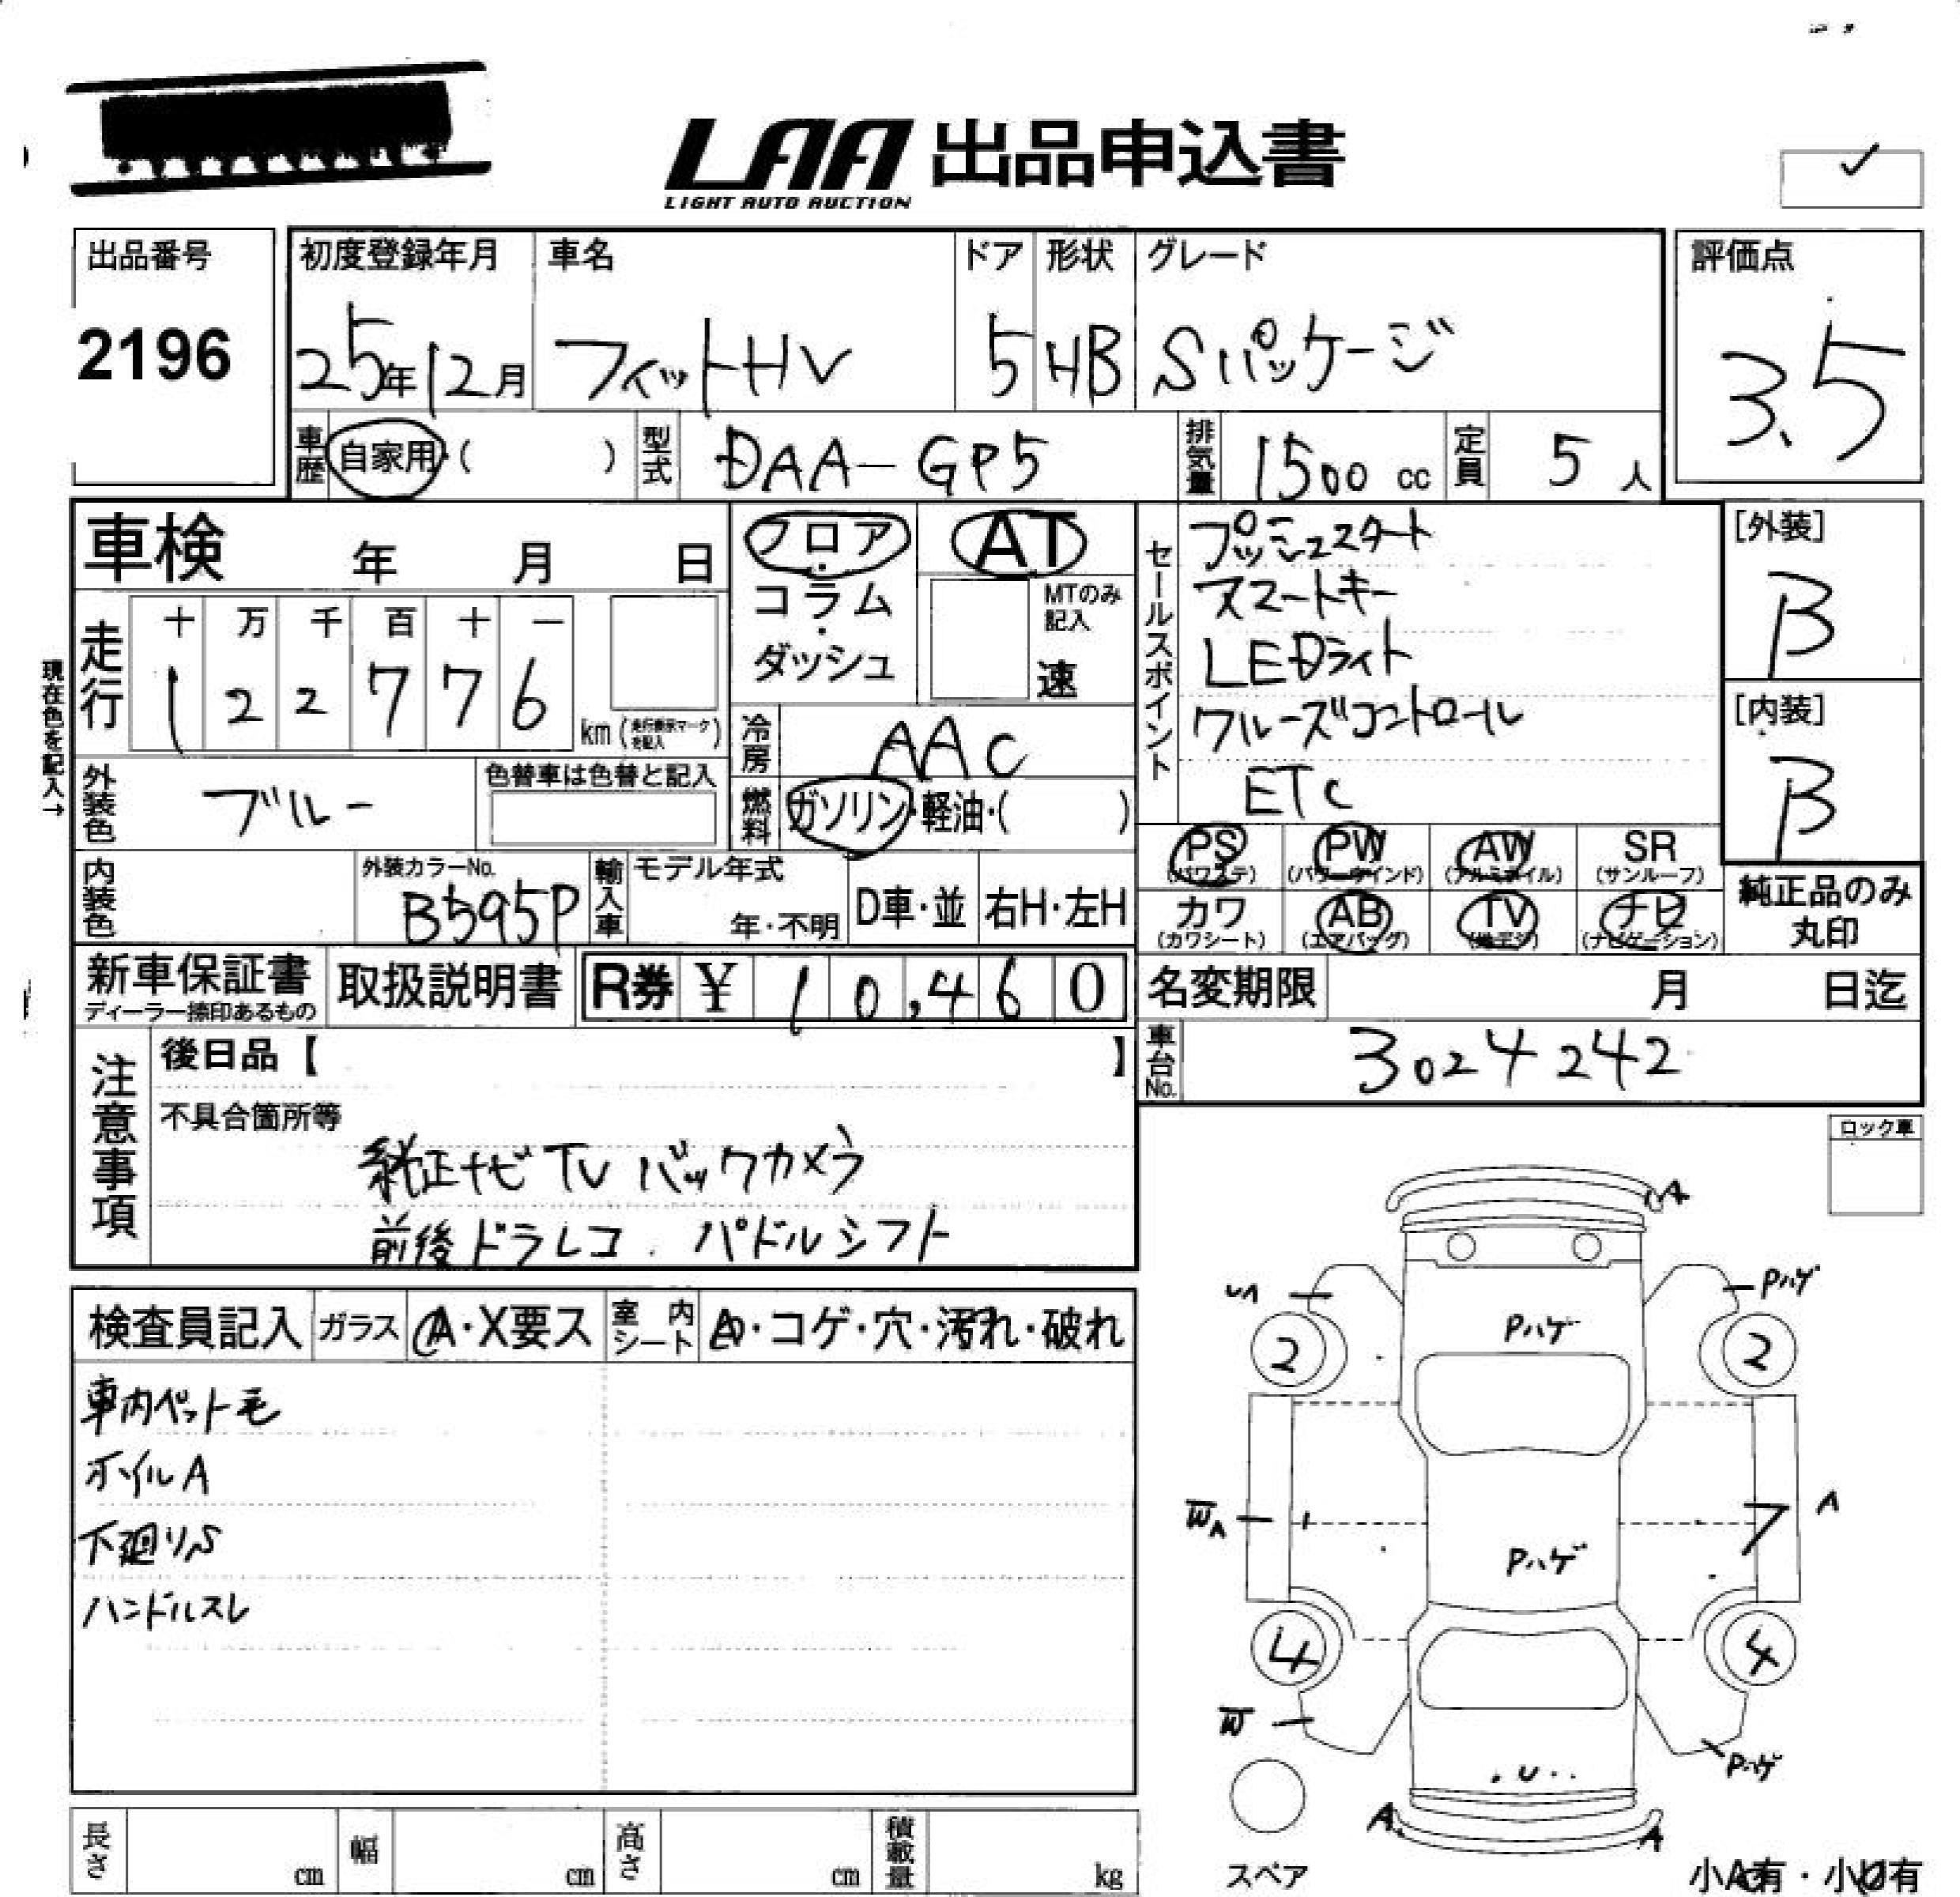 LAA 出品申込書
LIGHT AUTO AUCTION
出品番号
2196
初度登録年月
25年12月
車名
フィットHV
ドア
5
形状
HB
グレード
Sパッケージ
評価点
3.5
車歴 自家用・( )
型式 DAA-GP5
排気量 1500 cc
定員 5 人
車検 年 月 日
フロア・コラム・ダッシュ
AT
MTのみ記入
速
セールスポイント
プッシュスタート
スマートキー
LEDライト
クルーズコントロール
ETC
[外装]
B
[内装]
B
現在色を記入→
走行
十 万 千 百 十 一
1 2 2 7 7 6
km (走行表示マークを記入)
冷房 AAC
外装色 ブルー
色替車は色替と記入
燃料 ガソリン・軽油・( )
PS (パワステ)
PW (パワーウインド)
AW (アルミホイル)
SR (サンルーフ)
カワ (カワシート)
AB (エアバッグ)
TV (地デジ)
ナビ (ナビゲーション)
純正品のみ丸印
内装色
外装カラーNo.
B595P
輸入車
モデル年式
年・不明
D車・並
右H・左H
新車保証書
ディーラー捺印あるもの
取扱説明書
R券 ¥ 10,460
名変期限 月 日迄
車台No. 3024242
注意事項
後日品【 】
不具合箇所等
純正ナビ TV バックカメラ
前後ドラレコ. パドルシフト
ロック車
検査員記入
ガラス A・X要ス
室内シート
・コゲ・穴・汚れ・破れ
車内ペット毛
ホイルA
下廻りS
ハンドルスレ
A
Pハゲ
Pハゲ
2
2
W A
A
Pハゲ
4
4
W
Pハゲ
U
A
A
スペア
小A有・小U有
長さ cm
幅 cm
高さ cm
積載量 kg